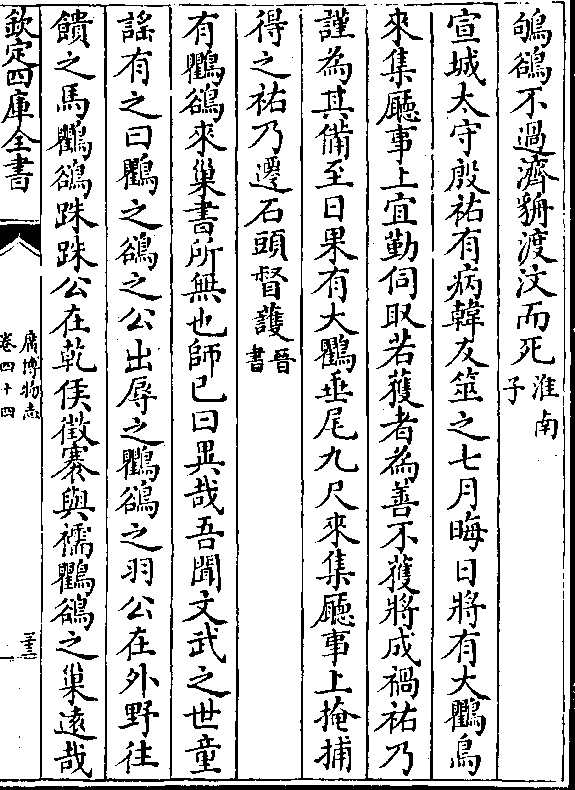 鴝鵒不過濟貈渡汶而死淮南子
宣城太守殷祐有病韓友筮之七月晦日將有大鸜鳥
來集廳事上宜勤伺取若獲者為善不獲將成禍祐乃
謹為其備至日果有大鸜垂尾九尺來集廳事上掩捕
得之祐乃遷石頭督護晉書
有鸜鵒來巢書所無也師已曰異哉吾聞文武之世童
謠有之曰鸜之鵒之公出辱之鸜鵒之羽公在外野往
饋之馬鸜鵒跦跦公在乾侯徵褰與襦鸜鵒之巢遠哉
欽定四庫全書
廣博物志
卷四十四